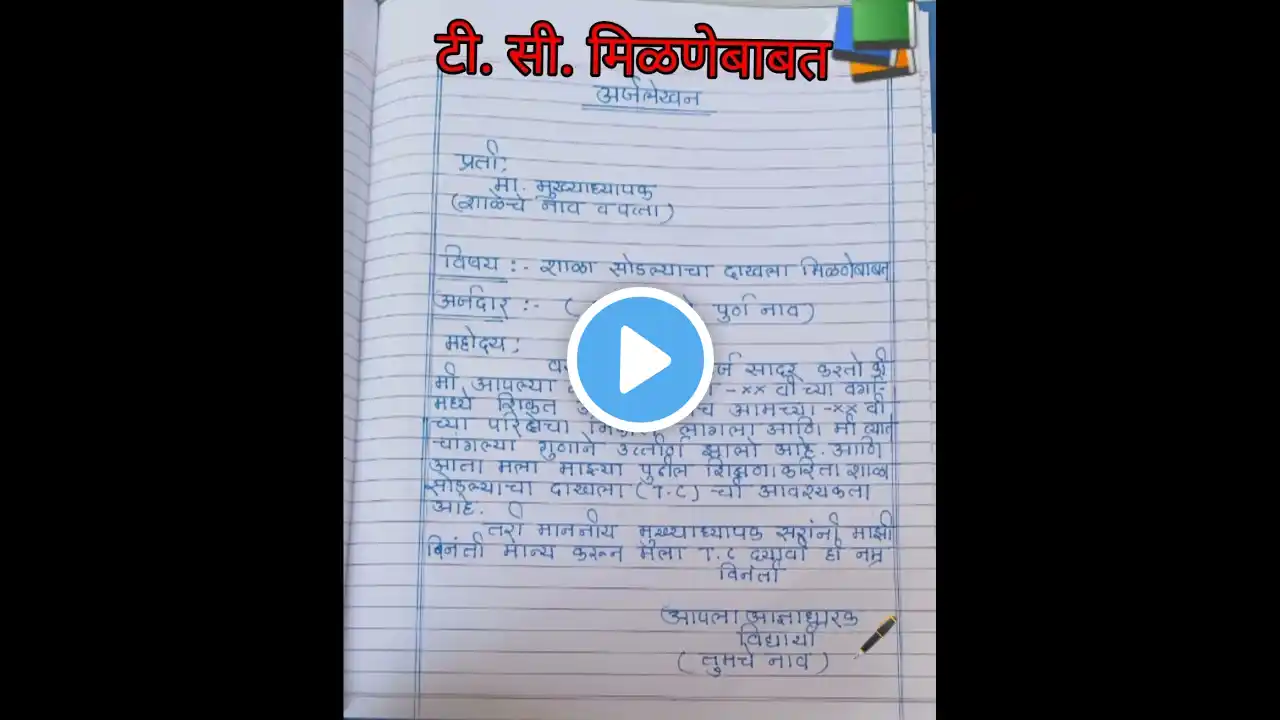 टी. सी. मिळणेबाबत
अर्जलेखन
प्रती,
मा. मुख्याध्यापक
(शाळेचे नाव व पत्ता)
विषय :- शाळा सोडल्याचा दाखला मिळणेबाबत
अर्जदार :- ( पुर्ण नाव)
महोदय,
सादर करतो की
मी आपल्या -xx वी च्या वर्गा-
मध्ये शिकत आमच्या -xx वी
च्या परिक्षेचा लागला आणि मी त्यात
चांगल्या गुणाने उत्तीर्ण झालो आहे. आणि
आता मला माझ्या पुढील शिक्षणाकरिता शाळा
सोडल्याचा दाखला (T.C) ची आवश्यकता
आहे.
तरी माननीय मुख्याध्यापक सरांनी माझी
विनंती मान्य करून मला T.C दयावी ही नम्र
विनंती
आपला आज्ञाधारक
विद्यार्थी
(तुमचे नाव)